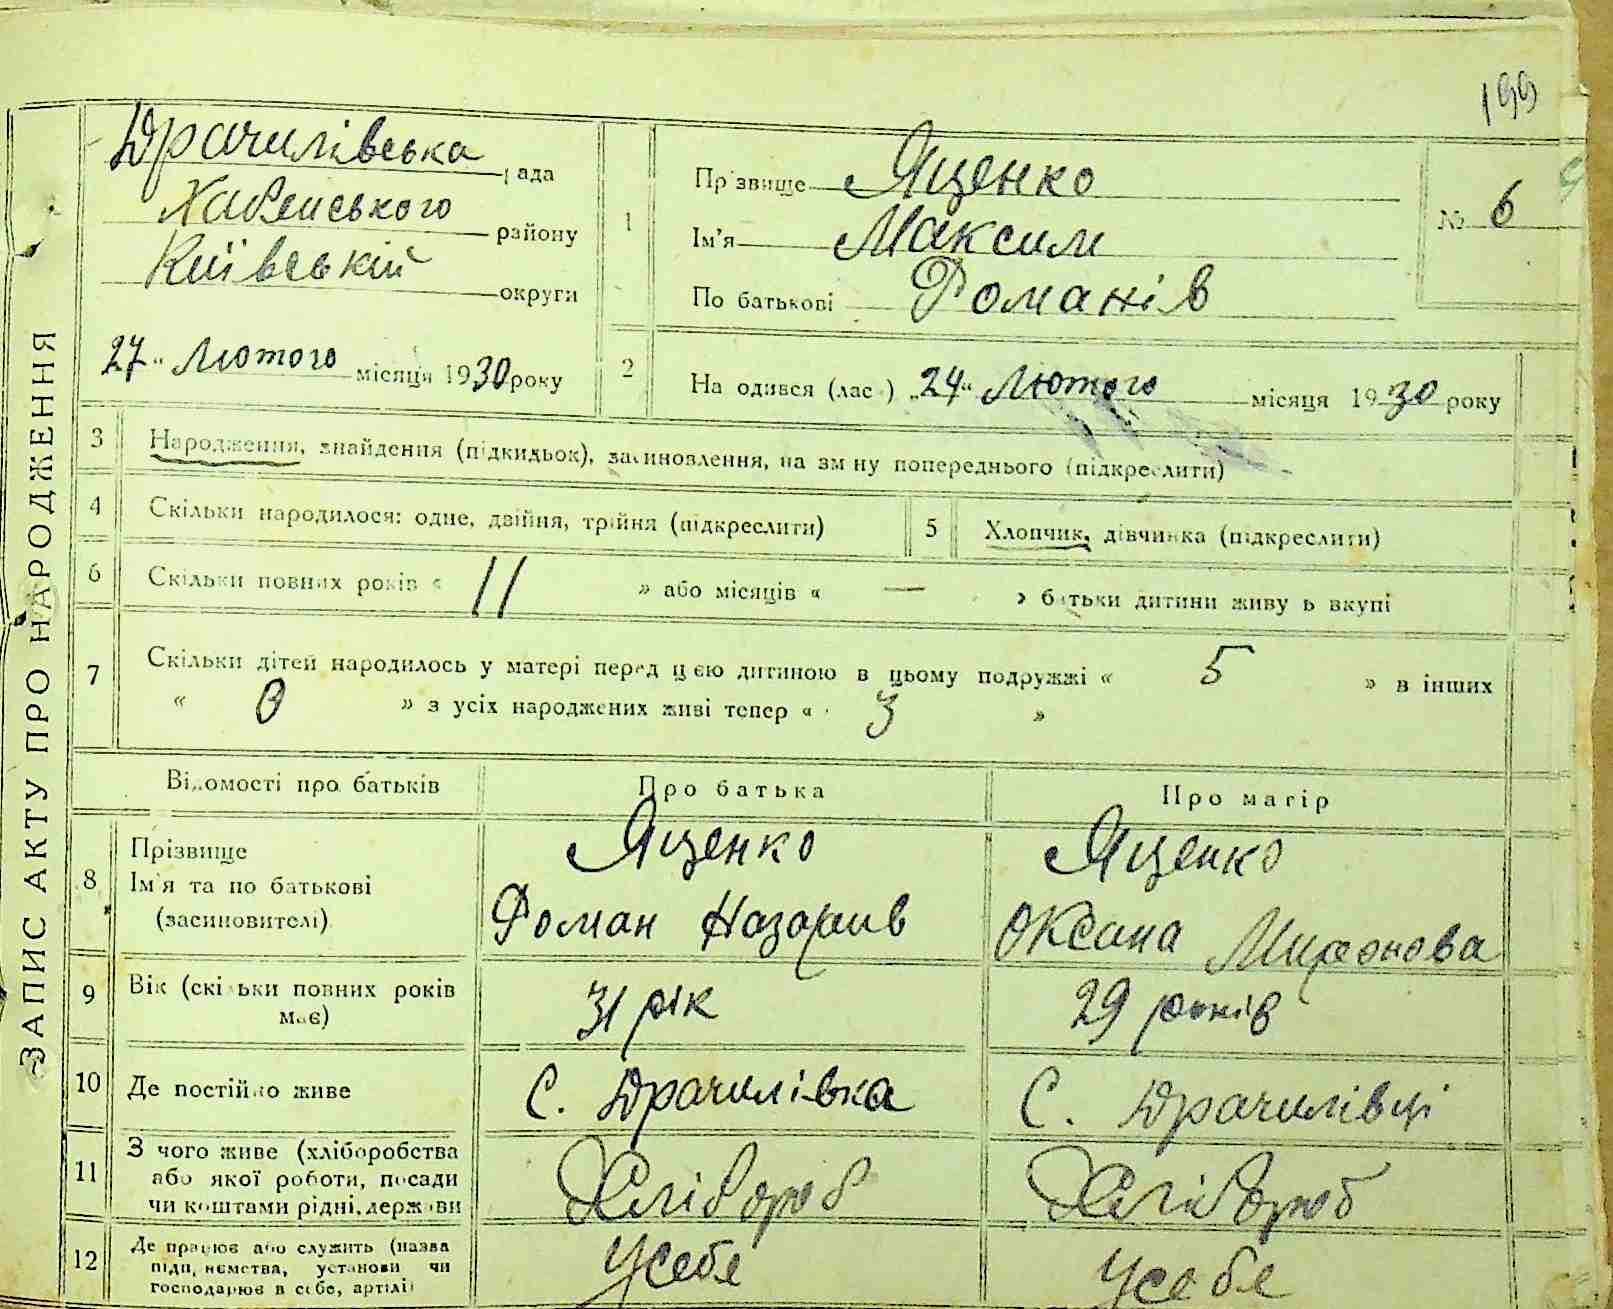 199
Драчилівська рада
Хабенського району
Київській округи
27 „ Лютого місяця 1930 року
1
Прізвище Яценко
Ім'я Максим
По батькові Романів
№ 6
2
На одився (лас ) „24“ Лютого місяця 1930 року
3 Народження, знайдення (підкидьок), засиновлення, на зміну попереднього (підкреслити)
4 Скільки народилося: одне, двійня, трійня (підкреслити)
5 Хлопчик, дівчинка (підкреслити)
6 Скільки повних років « 11 » або місяців « — » батьки дитини живуть вкупі
7 Скільки дітей народилось у матері перед цією дитиною в цьому подружжі « 5 » в інших
« 0 » з усіх народжених живі тепер « 3 »
Відомості про батьків
Про батька
Про матір
8 Прізвище
Ім'я та по батькові
(засиновителі)
Яценко
Роман Назарив
Яценко
Оксана Миронова
9 Вік (скільки повних років
має)
31 рік
29 років
10 Де постійно живе
С. Драчилівка
С. Драчилівці
11 З чого живе (хліборобства
або якої роботи, посади
чи коштами рідні, держави
Хлібороб
Хлібороб
12 Де працює або служить (назва
підприємства, установи чи
господарює в себе, артілі)
Усебе
Усебе
ЗАПИС АКТУ ПРО НАРОДЖЕННЯ